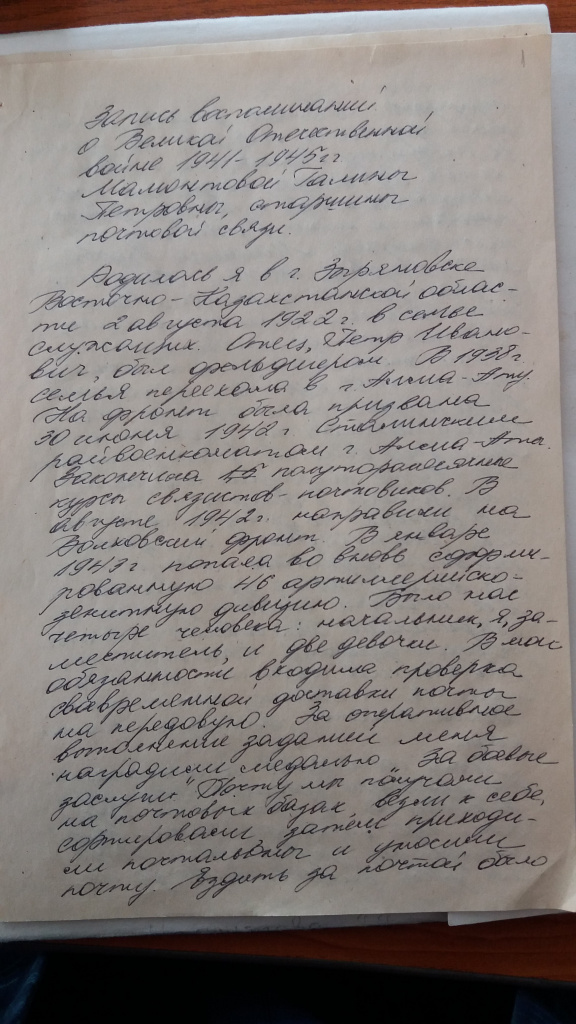 Запись воспоминаний
о Великой Отечественной
войне 1941-1945гг
Мамонтовой Галины
Петровны, старшины
почтовой связи.
Родилась я в г. Зыряновске
Восточно-Казахстанской облас-
ти 2 августа 1922г. в семье
служащих. Отец, Петр Ивано-
вич, был фельдшером. В 1938г.
семья переехала в г. Алма-Ату.
На фронт была призвана
30 июня 1942г. Сталинским
райвоенкоматом г. Алма-Аты.
Закончила полуторамесячные
курсы связистов-почтовиков. В
августе 1942г. направили на
Волховский фронт. В январе
1943г попала во вновь сформи-
рованную 46 артиллерийско-
зенитную дивизию. Было нас
четыре человека: начальник, я, за-
меститель, и две девочки. В мои
обязанности входила проверка
своевременной доставки почты
на передовую. За оперативное
выполнение заданий меня
наградили медалью "За боевые
заслуги". Почту мы получали
на почтовых базах, везли к себе,
сортировали, затем приходи-
ли почтальоны и уносили
почту. Ездить за почтой было